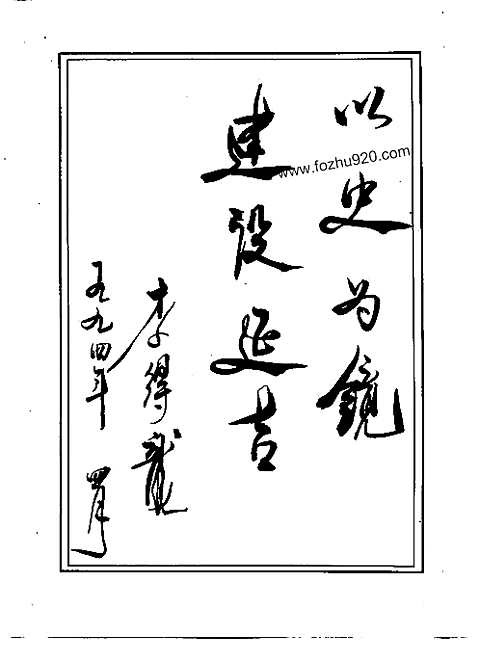 以史为镜
建设延吉
李得龍
一九九四年 四月
www.fozhu920.com